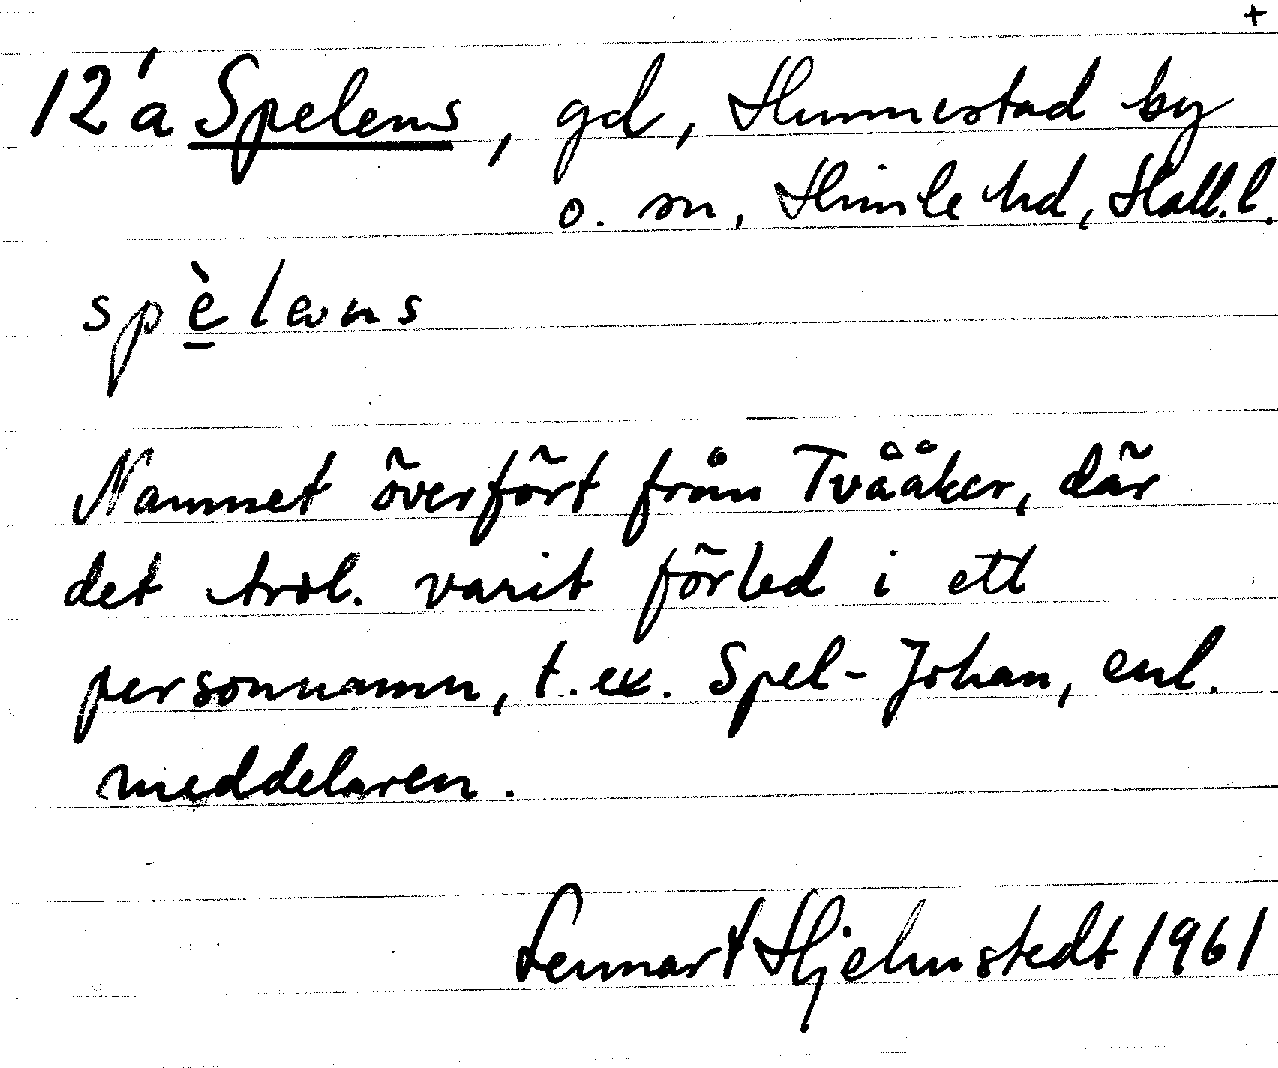 +
12'a Spelens, gd, Hunnestad by
o. sn, Himle hd, Hall.l.
spè̠lens
Namnet överfört från Tvååker, där
det trol. varit förled i ett
personnamn, t.ex. Spel-Johan, enl.
meddelaren.
Lennart Hjelmstedt 1961